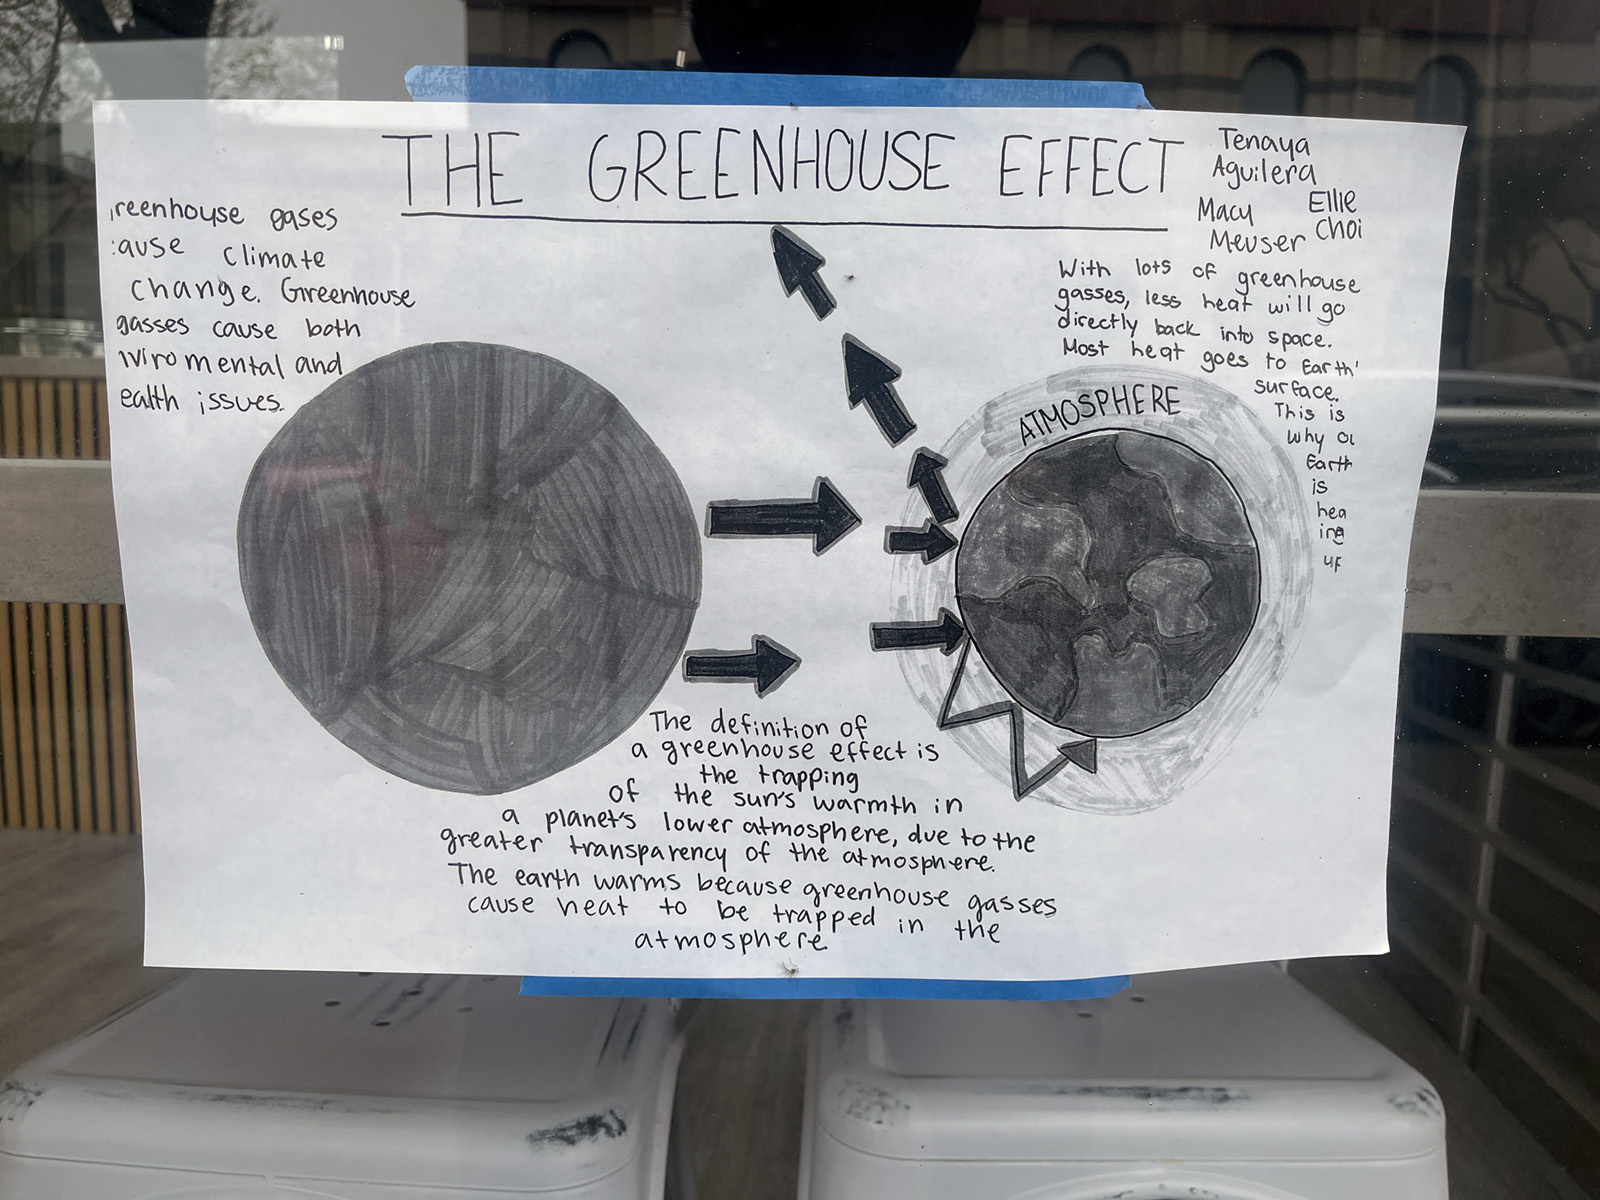 THE GREENHOUSE EFFECT
Tenaya
Aguilera
Macy
Meuser
Ellie
Choi
reenhouse gases
ause climate
change. Greenhouse
gasses cause both
viromental and
ealth issues.
With lots of greenhouse
gasses, less heat will go
directly back into space.
Most heat goes to Earth'
surface.
This is
why ou
Earth
is
hea
ing
up
ATMOSPHERE
The definition of
a greenhouse effect is
the trapping
of the sun's warmth in
a planet's lower atmosphere, due to the
greater transparency of the atmosphere.
The earth warms because greenhouse gasses
cause heat to be trapped in the
atmosphere.